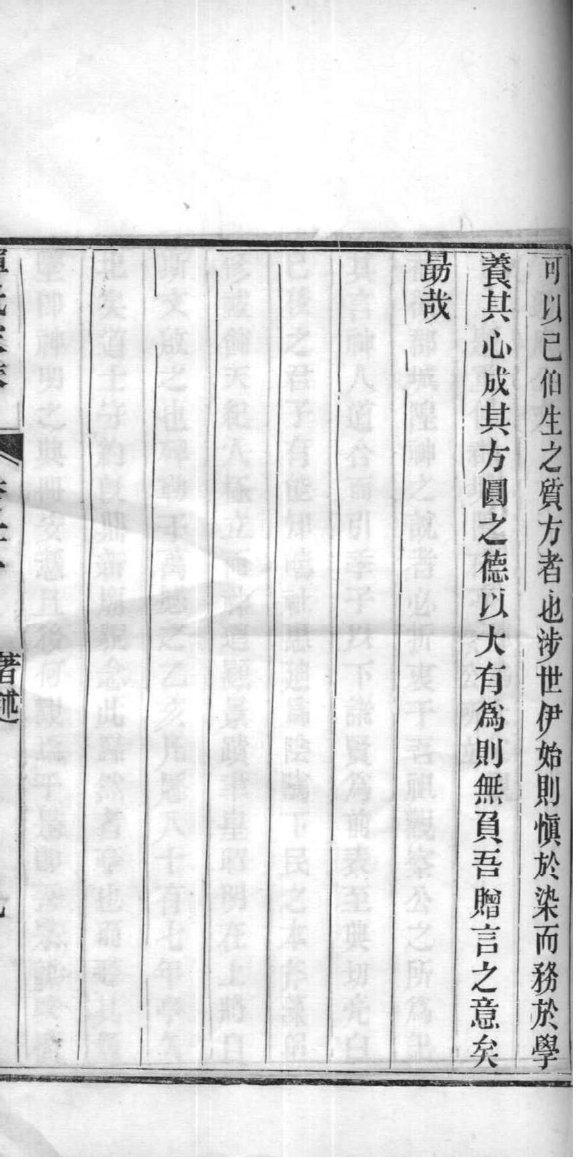 可以已伯生之質方者也涉世伊始則慎於染而務於學
養其心成其方圓之德以大有爲則無負吾贈言之意矣
勗哉
著述